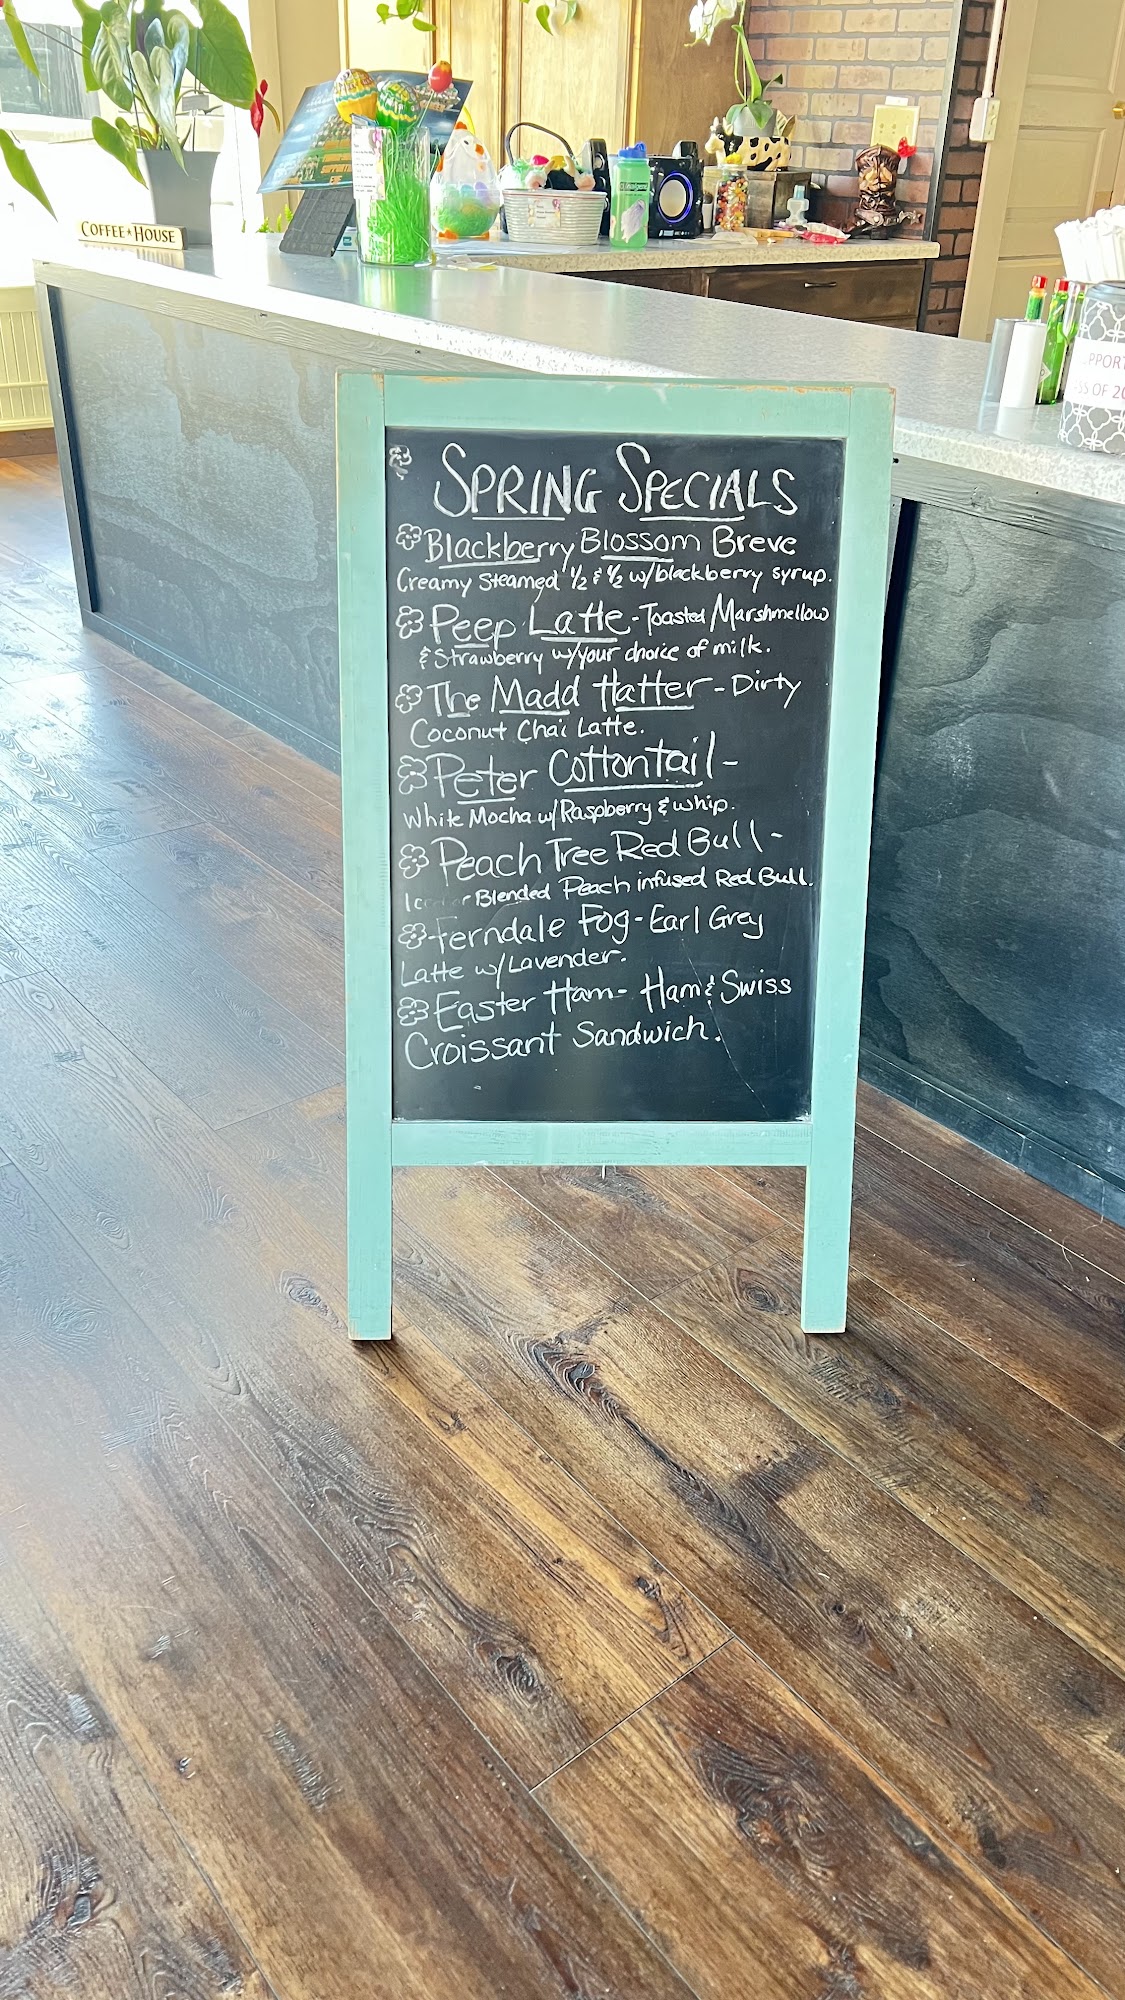 COFFEE★HOUSE
SPRING SPECIALS
Blackberry Blossom Breve
Creamy Steamed ½ & ½ w/blackberry syrup.
Peep Latte - Toasted Marshmellow
& Strawberry w/your choice of milk.
The Madd Hatter - Dirty
Coconut Chai Latte.
Peter Cottontail -
White Mocha w/Raspberry & whip.
Peach Tree Red Bull -
Blended Peach infused Red Bull.
Ferndale Fog - Earl Grey
Latte w/Lavender.
Easter Ham - Ham & Swiss
Croissant Sandwich.